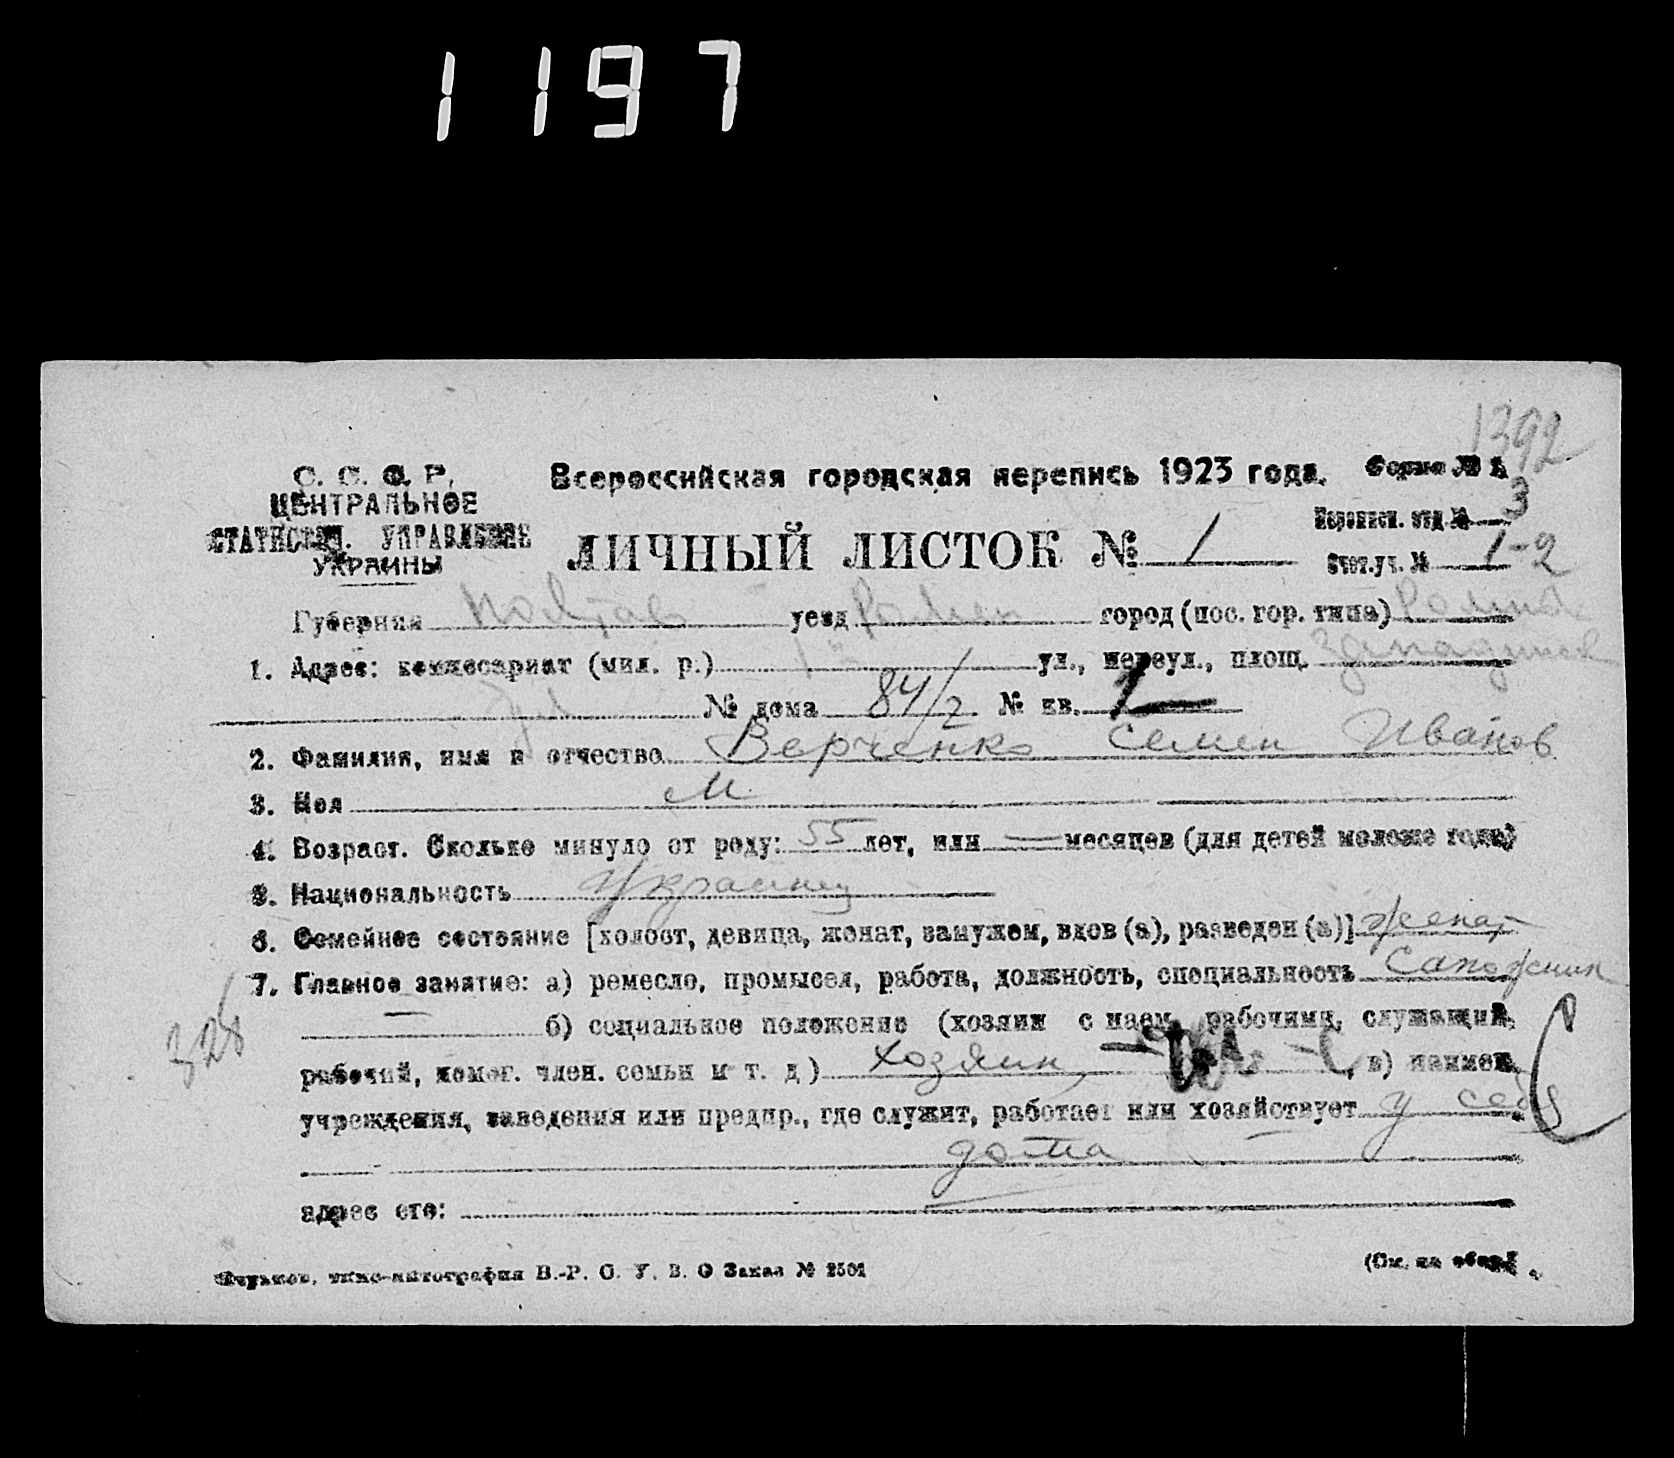 1197
1392
С. С. С. Р.
ЦЕНТРАЛЬНОЕ
СТАТИСТИЧ. УПРАВЛЕНИЕ
УКРАИНЫ
Всероссийская городская перепись 1923 года. Форма № 1.
Переписн. отд. № 3
ЛИЧНЫЙ ЛИСТОК № 1
Счет. уч. № 1-2
Губерния Полтав уезд Ромен город (пос. гор. типа) Ромны
1. Адрес: комиссариат (мил. р.) 1 ул., переул., площ.
№ дома 84/2 № кв. 2
2. Фамилия, имя и отчество Верченко Семен Иванов
3. Пол М
4. Возраст. Сколько минуло от роду: 55 лет, или — месяцев (для детей моложе года)
5. Национальность Украинец
6. Семейное состояние [холост, девица, женат, замужем, вдов (а), разведен (а)] женат
7. Главное занятие: а) ремесло, промысел, работа, должность, специальность Сапожник
328
— б) социальное положение (хозяин с наем. рабочими, служащий,
рабочий, помог. член. семьи и т. д.) хозяин, в) наимен.
учреждения, заведения или предпр., где служит, работает или хозяйствует у себя
дома
адрес его:
Харьков, типо-литография В.-Р. С. У. В. О Заказ № 2501
(См. на обор.)